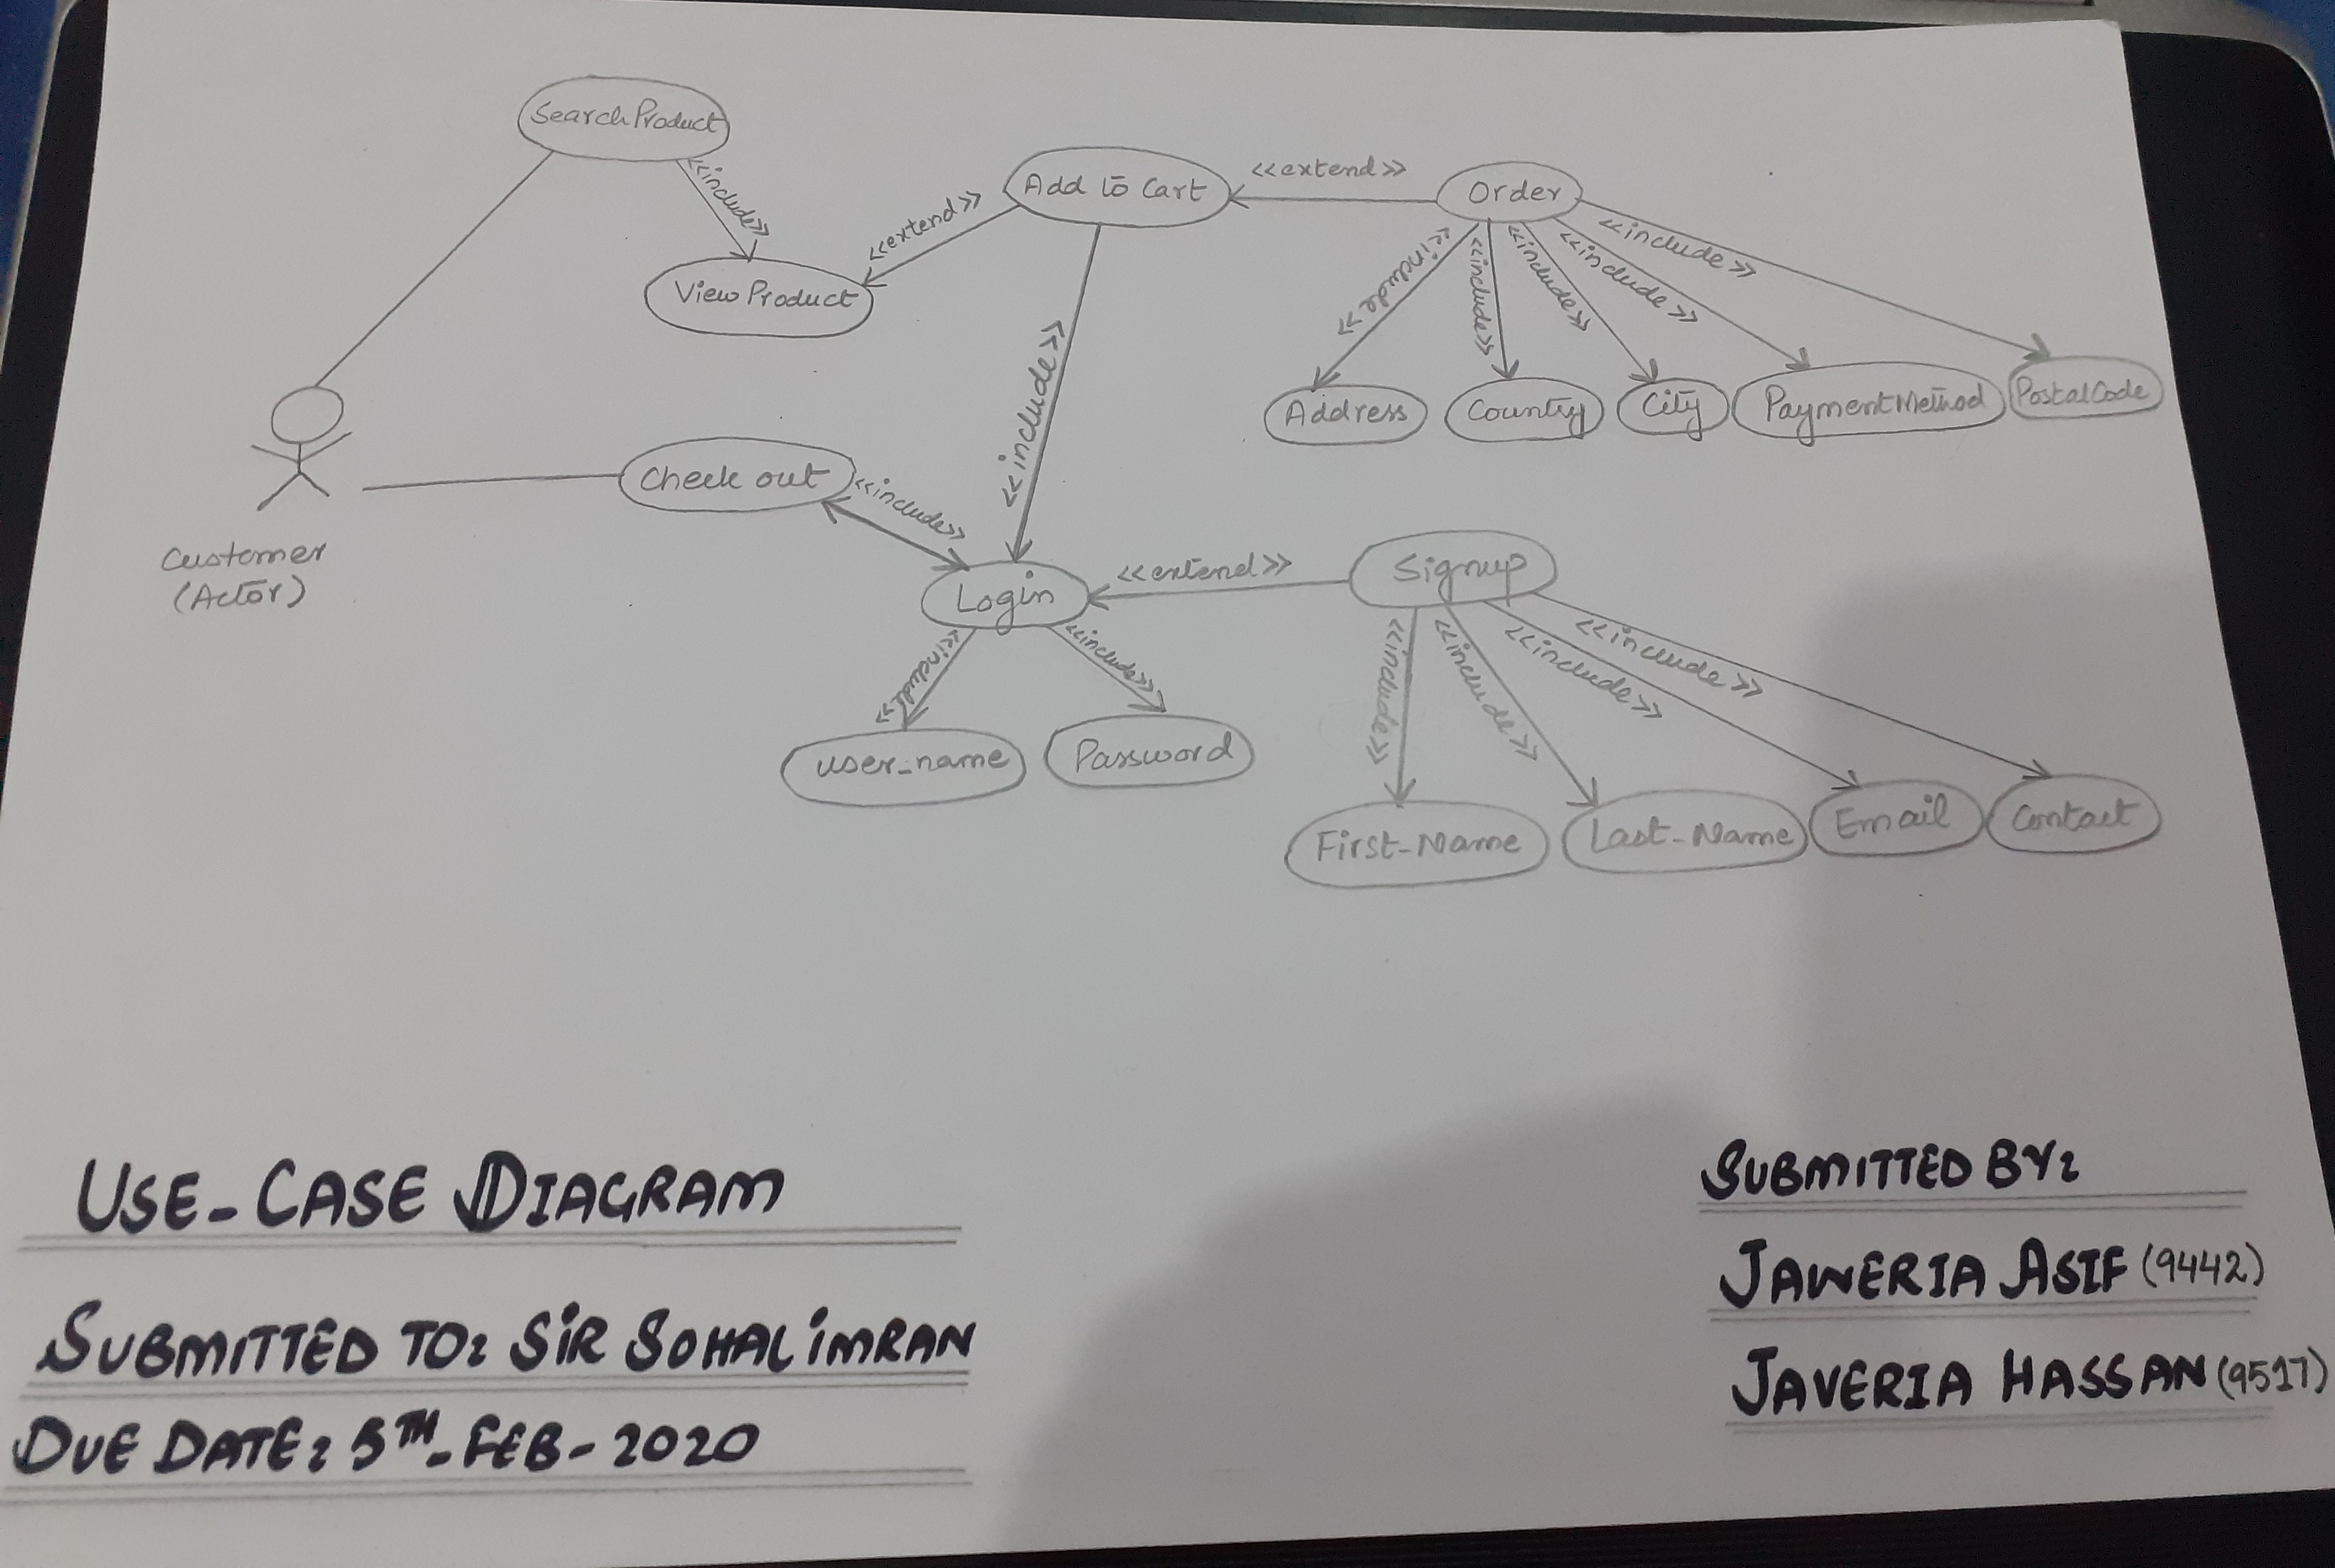 SearchProduct
<<include>>
ViewProduct
<<extend>>
Add to Cart
<<extend>>
Order
<<include>>
<<include>>
<<include>>
<<include>>
<<include>>
Address
Country
City
PaymentMethod
PostalCode
<<include>>
Check out
<<include>>
Customer
(Actor)
Login
<<extend>>
Signup
<<include>>
<<include>>
user_name
Password
<<include>>
<<include>>
<<include>>
<<include>>
First-Name
Last-Name
Email
Contact
USE-CASE DIAGRAM
SUBMITTED TO: SiR SOHAL iMRAN
DUE DATE: 5TH-FEB-2020
SUBMITTED BY:
JAWERIA ASIF (9442)
JAVERIA HASSAN (9517)